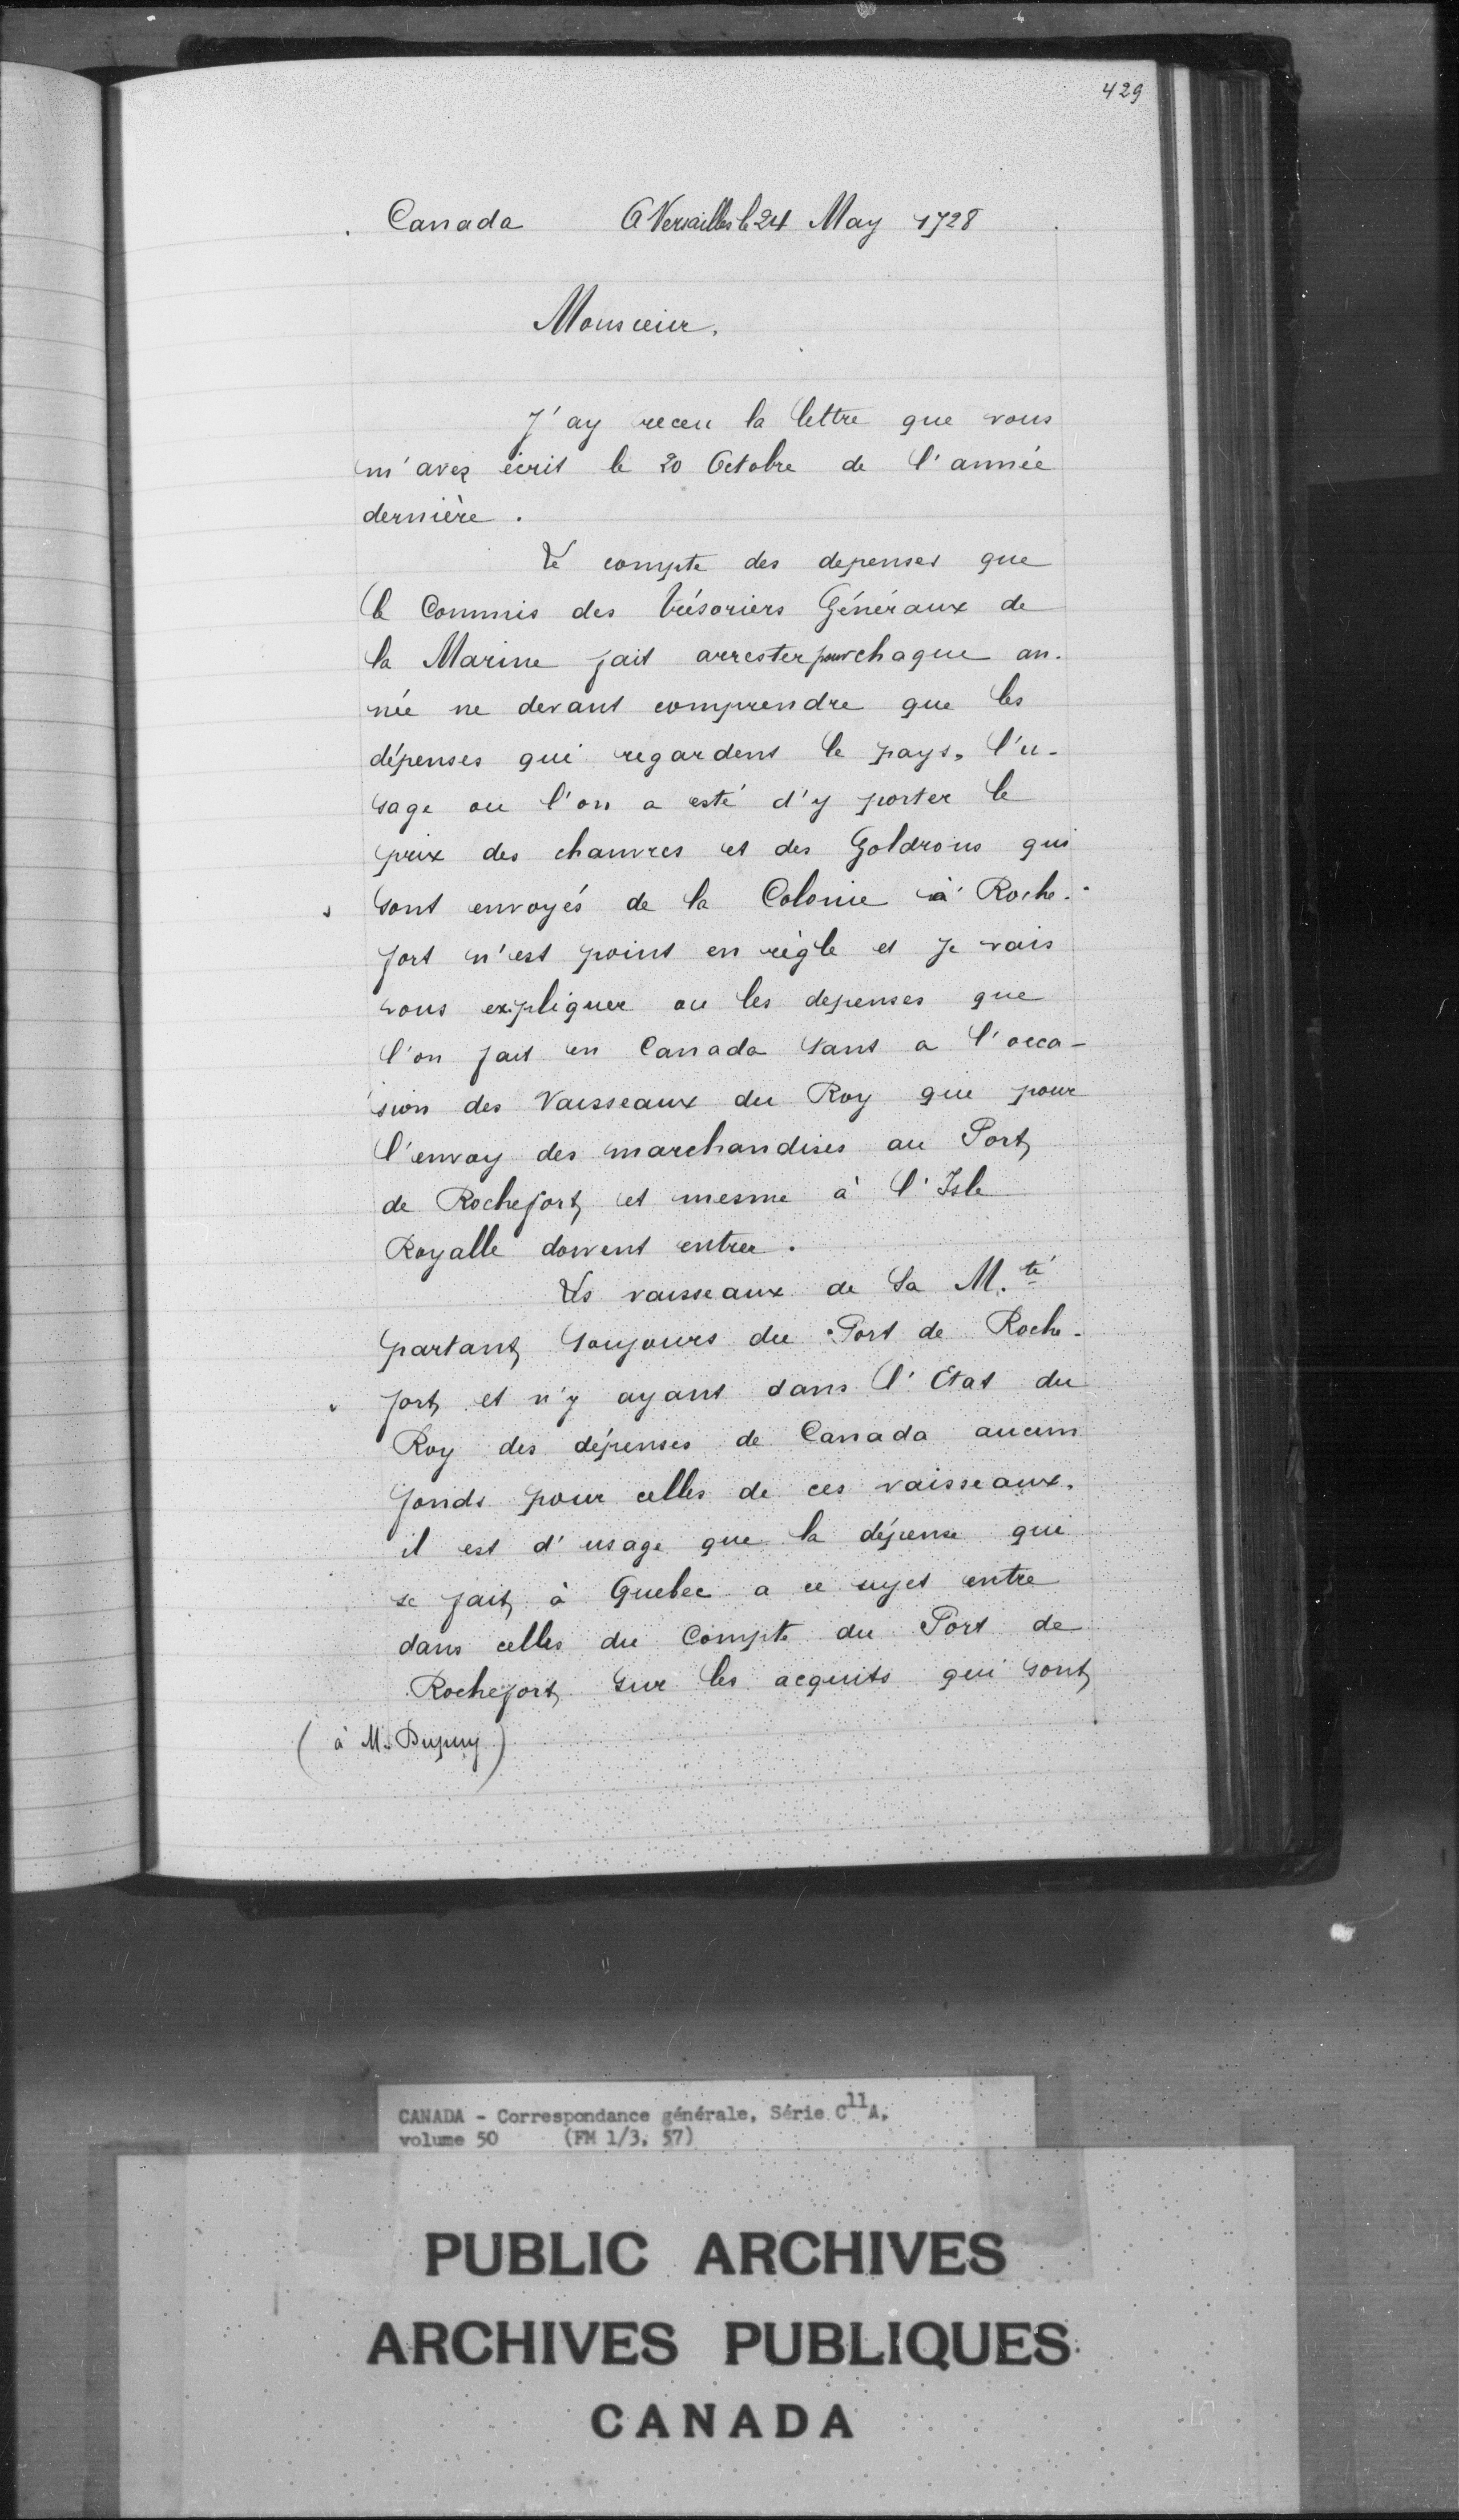 429
Canada A Versailles le 24 May 1728
Monsieur,
J'ay receu la lettre que vous
m'avez écrit le 20 Octobre de l'année
dernière.
Le compte des depenses que
le Commis des trésoriers Généraux de
la Marine fait arrester pour chaque an-
née ne devant comprendre que les
dépenses qui regardent le pays, l'u-
sage ou l'on a esté d'y porter le
prix des chanvres et des Goldrons qui
sont envoyés de la Colonie à Roche-
fort n'est point en règle et je vais
vous expliquer ou les depenses que
l'on fait en Canada tant a l'occa-
sion des Vaisseaux du Roy que pour
l'envoy des marchandises au Port
de Rochefort et mesme à l'Isle
Royalle doivent entrer.
Les vaisseaux de Sa M.té
partant toujours du Port de Roche-
fort et n'y ayant dans l'Etat du
Roy des dépenses de Canada aucun
fonds pour celles de ces vaisseaux,
il est d'usage que la dépense qui
se fait à Quebec a ce sujet entre
dans celles du Compte du Port de
Rochefort sur les acquits qui sont
(à M. Dupuy)
CANADA - Correspondance générale, Série C11A,
volume 50 (FM 1/3, 57)
PUBLIC ARCHIVES
ARCHIVES PUBLIQUES
CANADA